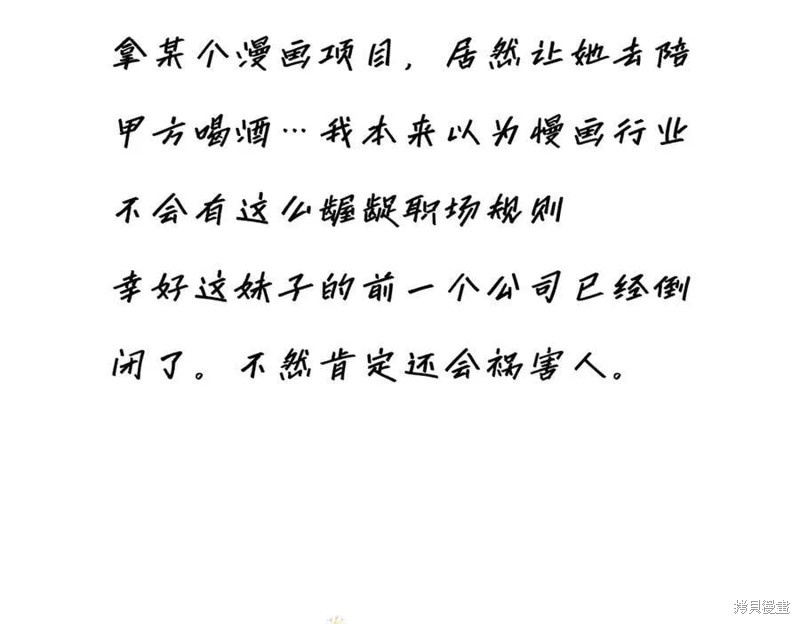 拿某个漫画项目，居然让她去陪
甲方喝酒…我本来以为慢画行业
不会有这么龌龊职场规则
幸好这妹子的前一个公司已经倒
闭了。不然肯定还会祸害人。
拷貝漫畫